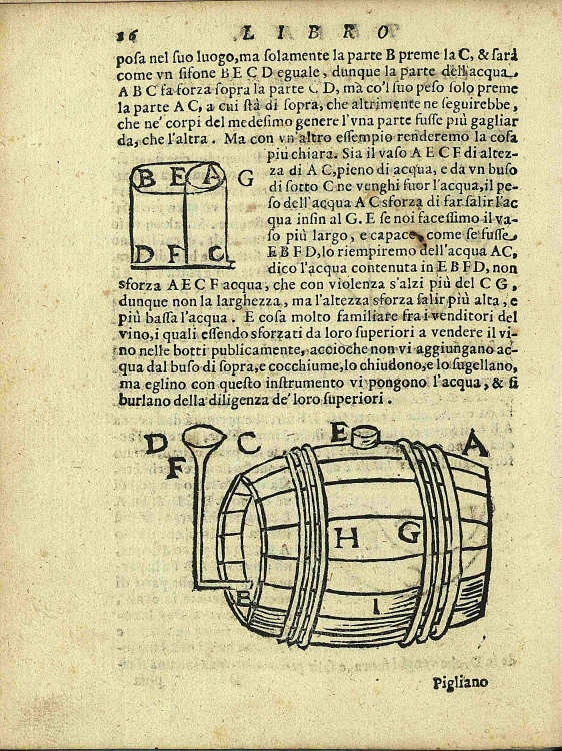 16 LIBRO
posa nel suo luogo, ma solamente la parte B preme la C, & sarà
come vn sifone B E C D eguale, dunque la parte dell'acqua
A B C fa forza sopra la parte C D, ma co'l suo peso solo preme
la parte A C, a cui stà di sopra, che altrimente ne seguirebbe,
che ne' corpi del medesimo genere l'vna parte fusse più gagliar
da, che l'altra. Ma con vn altro essempio renderemo la cosa
piu chiara. Sia il vaso A E C F di altez-
za di A C, pieno di acqua, e da vn buso
di sotto C ne venghi fuor l'acqua, il pe-
so dell'acqua A C sforza di far salir l'ac
qua insin al G. E se noi facessimo il va-
so più largo, e capace, come se fusse
E B F D, lo riempiremo dell'acqua AC,
dico l'acqua contenuta in E B F D, non
sforza A E C F acqua, che con violenza s'alzi più del C G,
dunque non la larghezza, ma l'altezza sforza salir più alta, e
più bassa l'acqua. E cosa molto familiare fra i venditori del
vino, i quali essendo sforzati da loro superiori a vendere il vi-
no nelle botti publicamente, accioche non vi aggiungano ac-
qua dal buso di sopra, e cocchiume, lo chiudono, e lo sugellano,
ma eglino con questo instrumento vi pongono l'acqua, & si
burlano della diligenza de' loro superiori.
B E A G
D F C
D C E A
F
H G
B I
Pigliano